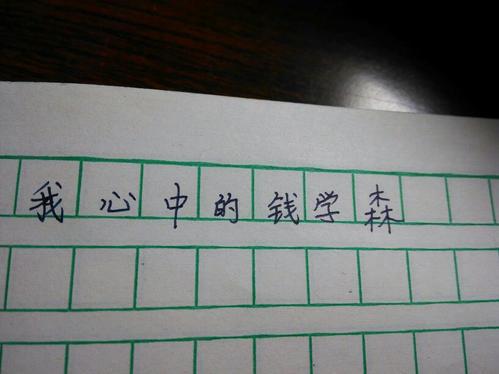 我心中的钱学森